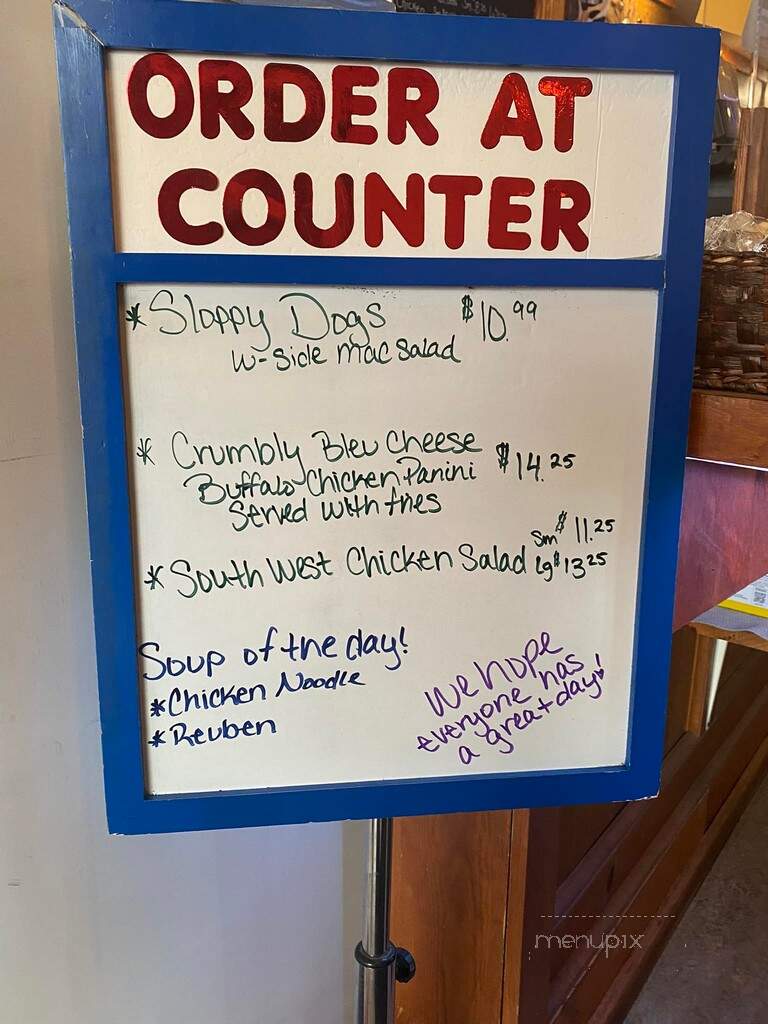 ORDER AT
COUNTER
* Sloppy Dogs $10.99
w-side mac salad
* Crumbly Bleu Cheese
Buffalo Chicken Panini $14.25
Served with fries
* South West Chicken Salad Sm $11.25
Lg $13.25
Soup of the day!
* Chicken Noodle
* Reuben
We hope
everyone has
a great day!
menupix